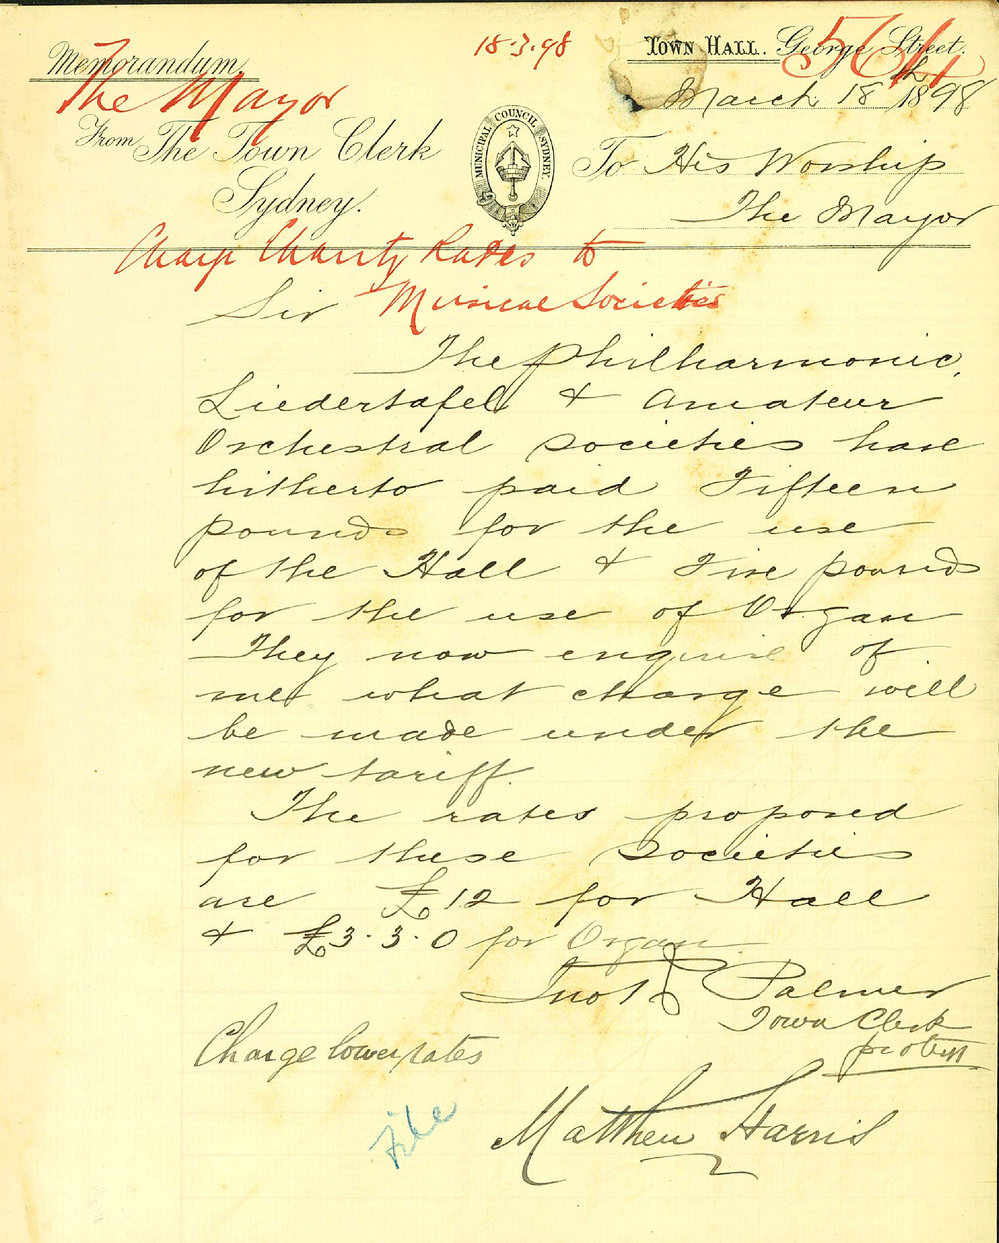 18.3.98
564
TOWN HALL. George Street.
Memorandum
The Mayor
March 18th 1898
MUNICIPAL COUNCIL SYDNEY.
From The Town Clerk
Sydney.
To His Worship
The Mayor
Charge Charity Rates to
Musical Societies
Sir
The Philharmonic,
Liedertafel & Amateur
Orchestral Societies have
hitherto paid Fifteen
pounds for the use
of the Hall & Five pounds
for the use of Organ
They now enquire of
me what charge will
be made under the
new tariff.
The rates proposed
for these Societies
are £12 for Hall
& £3.3.0 for Organ
Palmer
Town Clerk
Charge lower rates
File
Matthew Harris